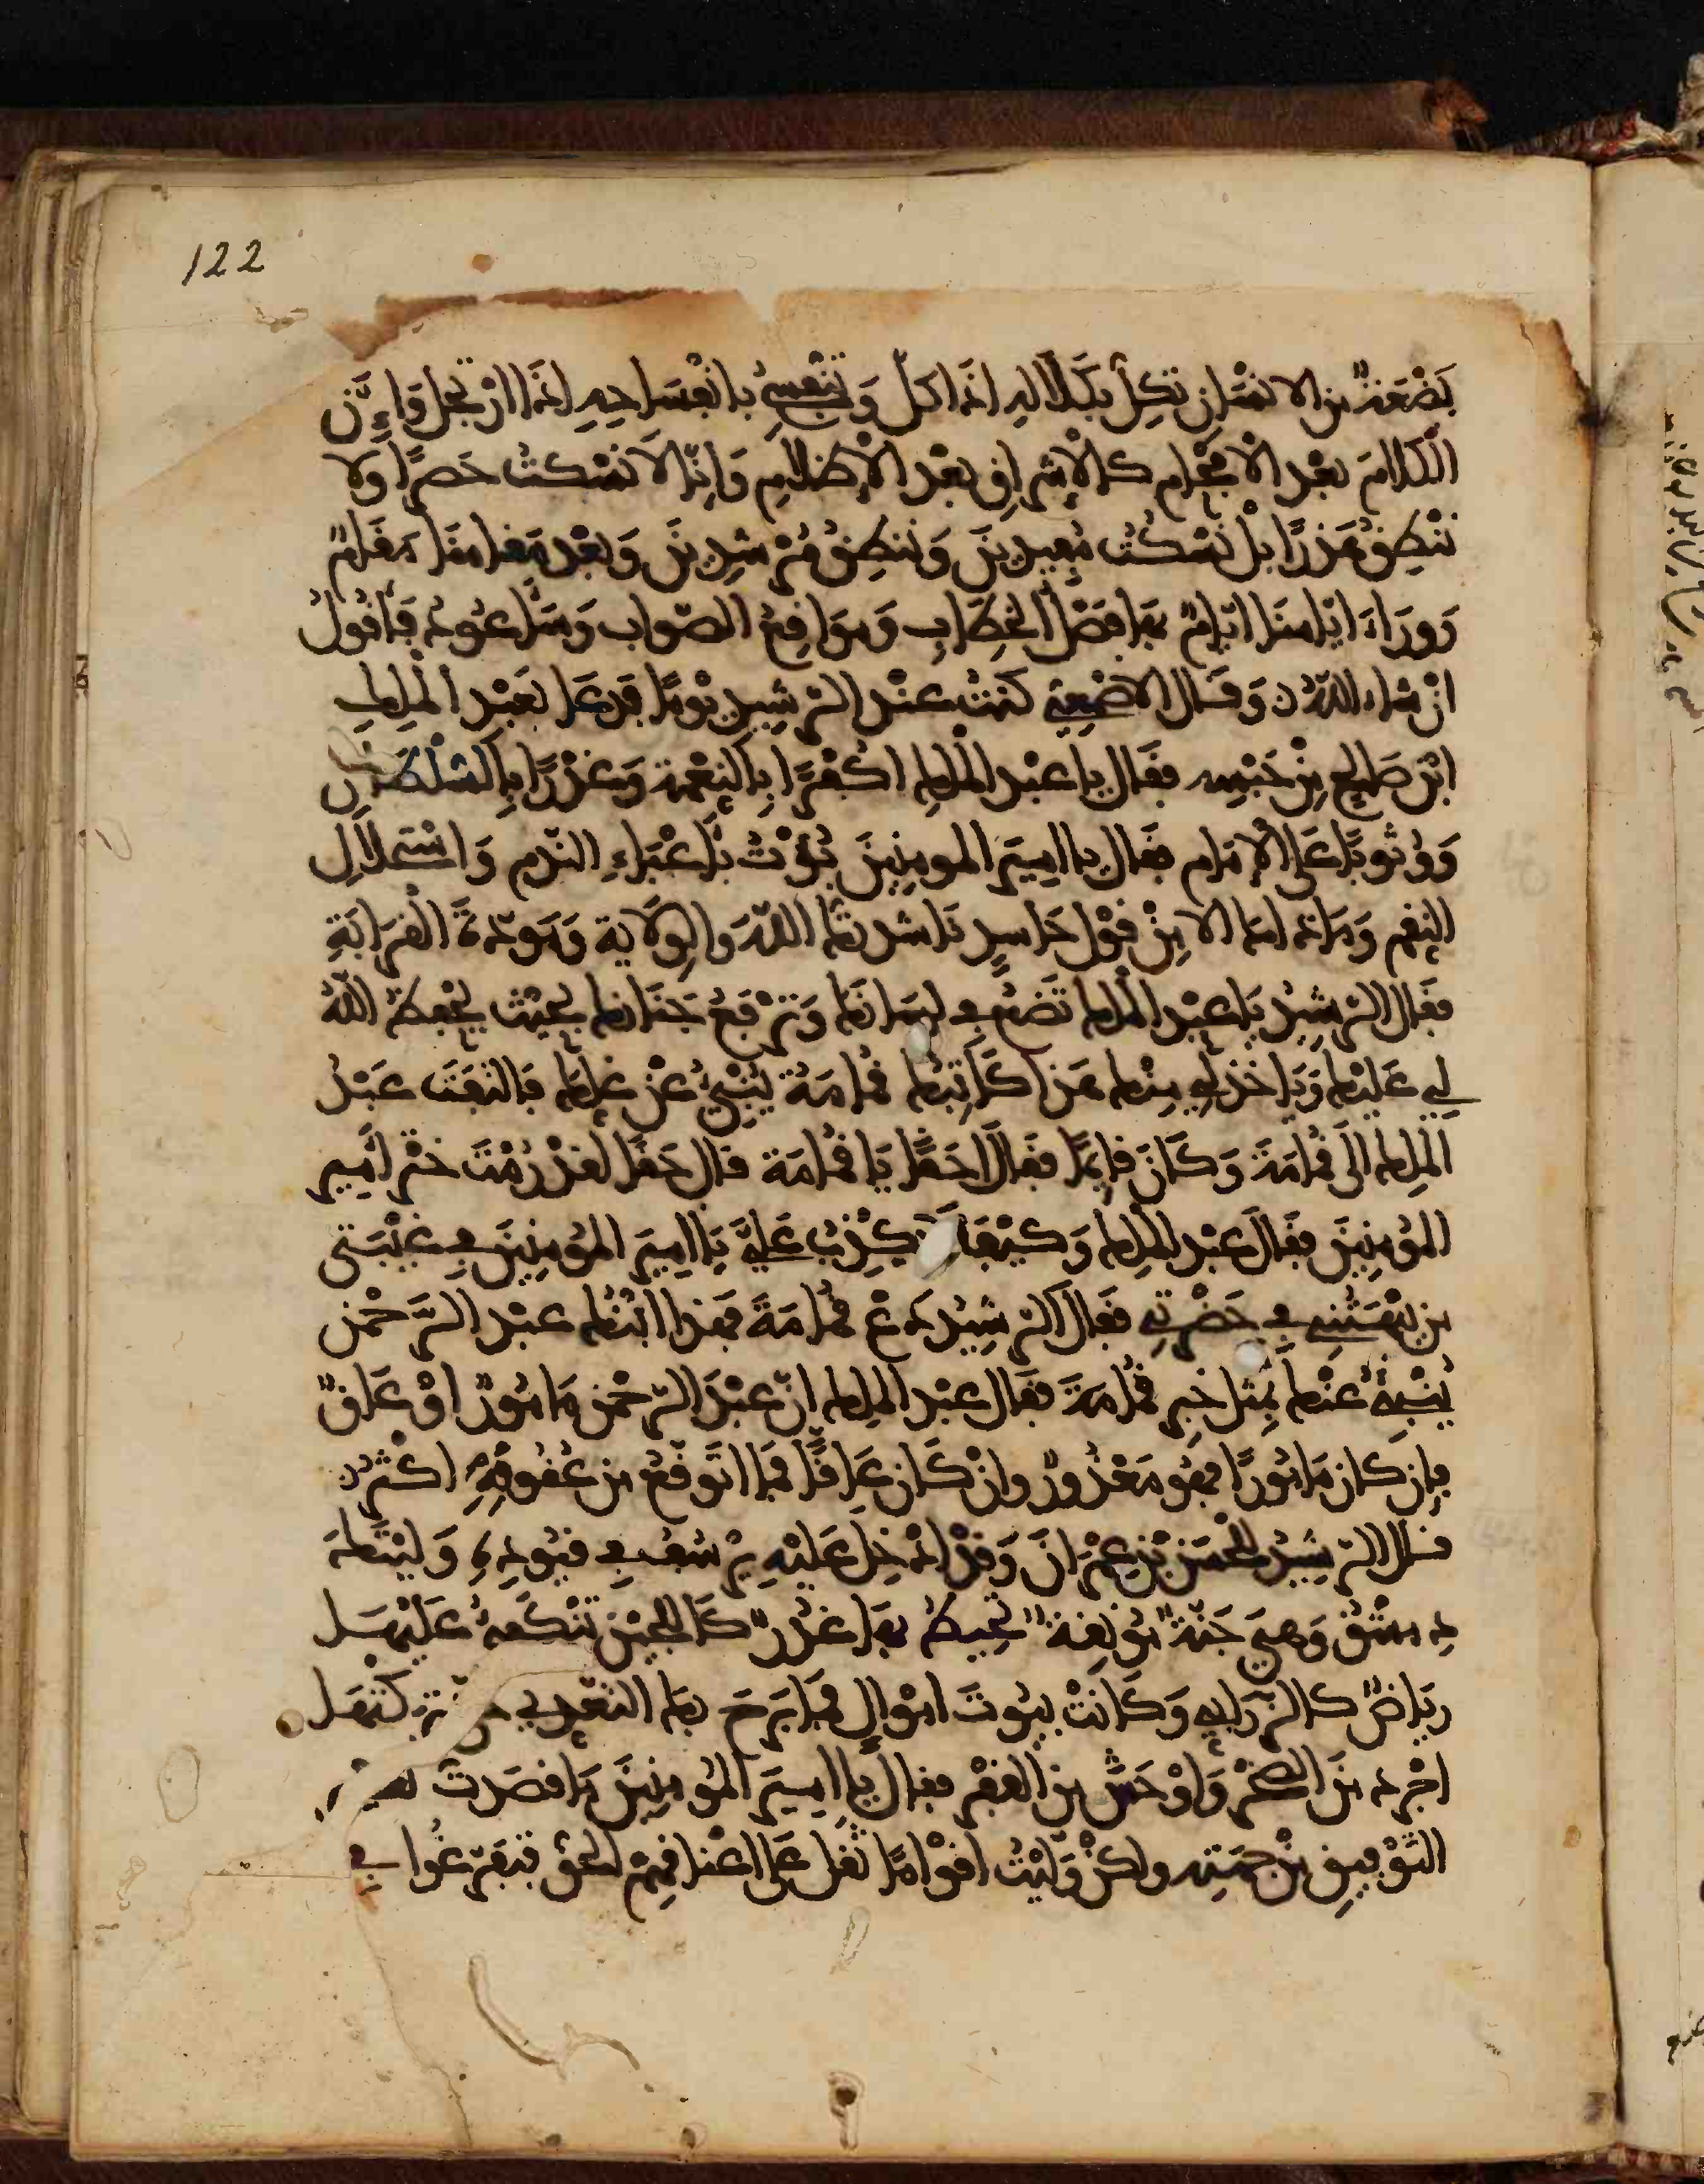 122
بَضْعَةٌ من الانسان تكِلُّ بكَلَالِهِ اذَا كَلَّ وَتنفسِحُ بانفسَاحِهِ اذَا ارْتجلَ وَإِنَّ
الكلامَ بَعْد الافحَام كالاشراقِ بعْد الاظلامِ وَانّا لا نَسْكتُ حَصَرًا ولا
ننْطِقُ هَذرًا بلْ نَسْكُتُ مُفيدينَ وَننطِقُ مُرْشِدِينَ وَبعْد مَقامنَا مَقَامٌ
وَوَرَاءَ ايّامنَا ايّامٌ بهَا فَصْلُ الخِطَابِ وَموَاقِعُ الصّواب وَسَأعُودُ فَأقُولُ
انْ شاء اللهُ وَقَال الاصْمَعِي كنتُ عنْد الرشِيدِ يوْمًا فدعَا بعَبْد الملِكِ
ابْن صَالح مِنْ حَبْسِه فقَال يا عبْد الملك اكُفْرًا بِالنِعْمة وَغدْرًا بِالسُلْطَانِ
وَوُثوبًا عَلى الإمَام فقَال يا اميرَ المومِنِينَ بُؤْتُ بأعْبَاءِ النّدم وَاسْتحلالِ
النِقم وَمَا ذاك الا مِنْ قوْل حَاسِدٍ نَاشدتك اللهَ والوِلَاية وَمَودّةَ القرَابَةِ
فقَال الرشِيدُ يَا عبْد الملك تَضَعُ لي لسَانكَ وَترْفَعُ جَنَانك بحيْث يحْفظُ اللهُ
لي عَليْك وَيَاخذ لي مِنْك هَذا كَاتِبُك قُمامَةُ يُنْبِئُ عنْ غِلِّكَ فَالتفَتَ عَبْدُ
الملِك الى قُمامَةَ وَكَانَ قائِمًا فقَالَ احَقًّا يَا قُمامَة قال حَقًّا لقدْ رُمْتَ خَتْرَ أمِيرِ
المُؤمِنِينَ فقَالَ عبْد الملِك وَكيْفَ لَا يكْذِبُ عَلَيَّ يَا امِيرَ المُؤمِنِينَ فِي غَيْبَتي
من بهَتَنِي في حَضْرتِي فقَال الرّشِيدُ دَعْ قُمامَةَ فهَذا ابْنُك عبْد الرَّحْمن
يُنْبِئُ عنْك بمِثل خبر قُمامَةَ فقَال عبْد الملِك انّ عبْدَ الرحْمن مَامُورٌ اوْ عَاقٌّ
فإن كان مَامُورًا فهُو مَعْذُورٌ وانْ كَان عَاقًّا فَمَا اتَوقّعُ من عُقُوقِهِ اكثرُ
قال الرّشِيدُ للحْسَن بْنِ عِمْرَانَ وَقدْ ادْخِل عَليْهِ يرْسُفُ فِي قيُودِهِ وَليْتُكَ
دِمشْقَ وَهيَ جَنّةٌ مُونِقةٌ تُحِيطُ بهَا غدُرٌ كَاللّجيْن تَتَكفّأُ عَليهَا
رِيَاضٌ كالزّرَابي وَكَانتْ بيُوتَ امْوَالٍ فمَا بَرحَ بهَا التعَدّي كتهَا
اجْردَ منَ الصّخْر وَاوْحَشَ من القفْر فقال يا اميرَ المُؤمِنِينَ مَا قصَدتُ لغير
التَوْفِيقِ مِنْ جهَتِه ولكنْ وَلّيْتُ اقوَامًا ثقلَ عَلى اعْنَاقِهِمُ الحقُّ فتفَرّغُوا فِي